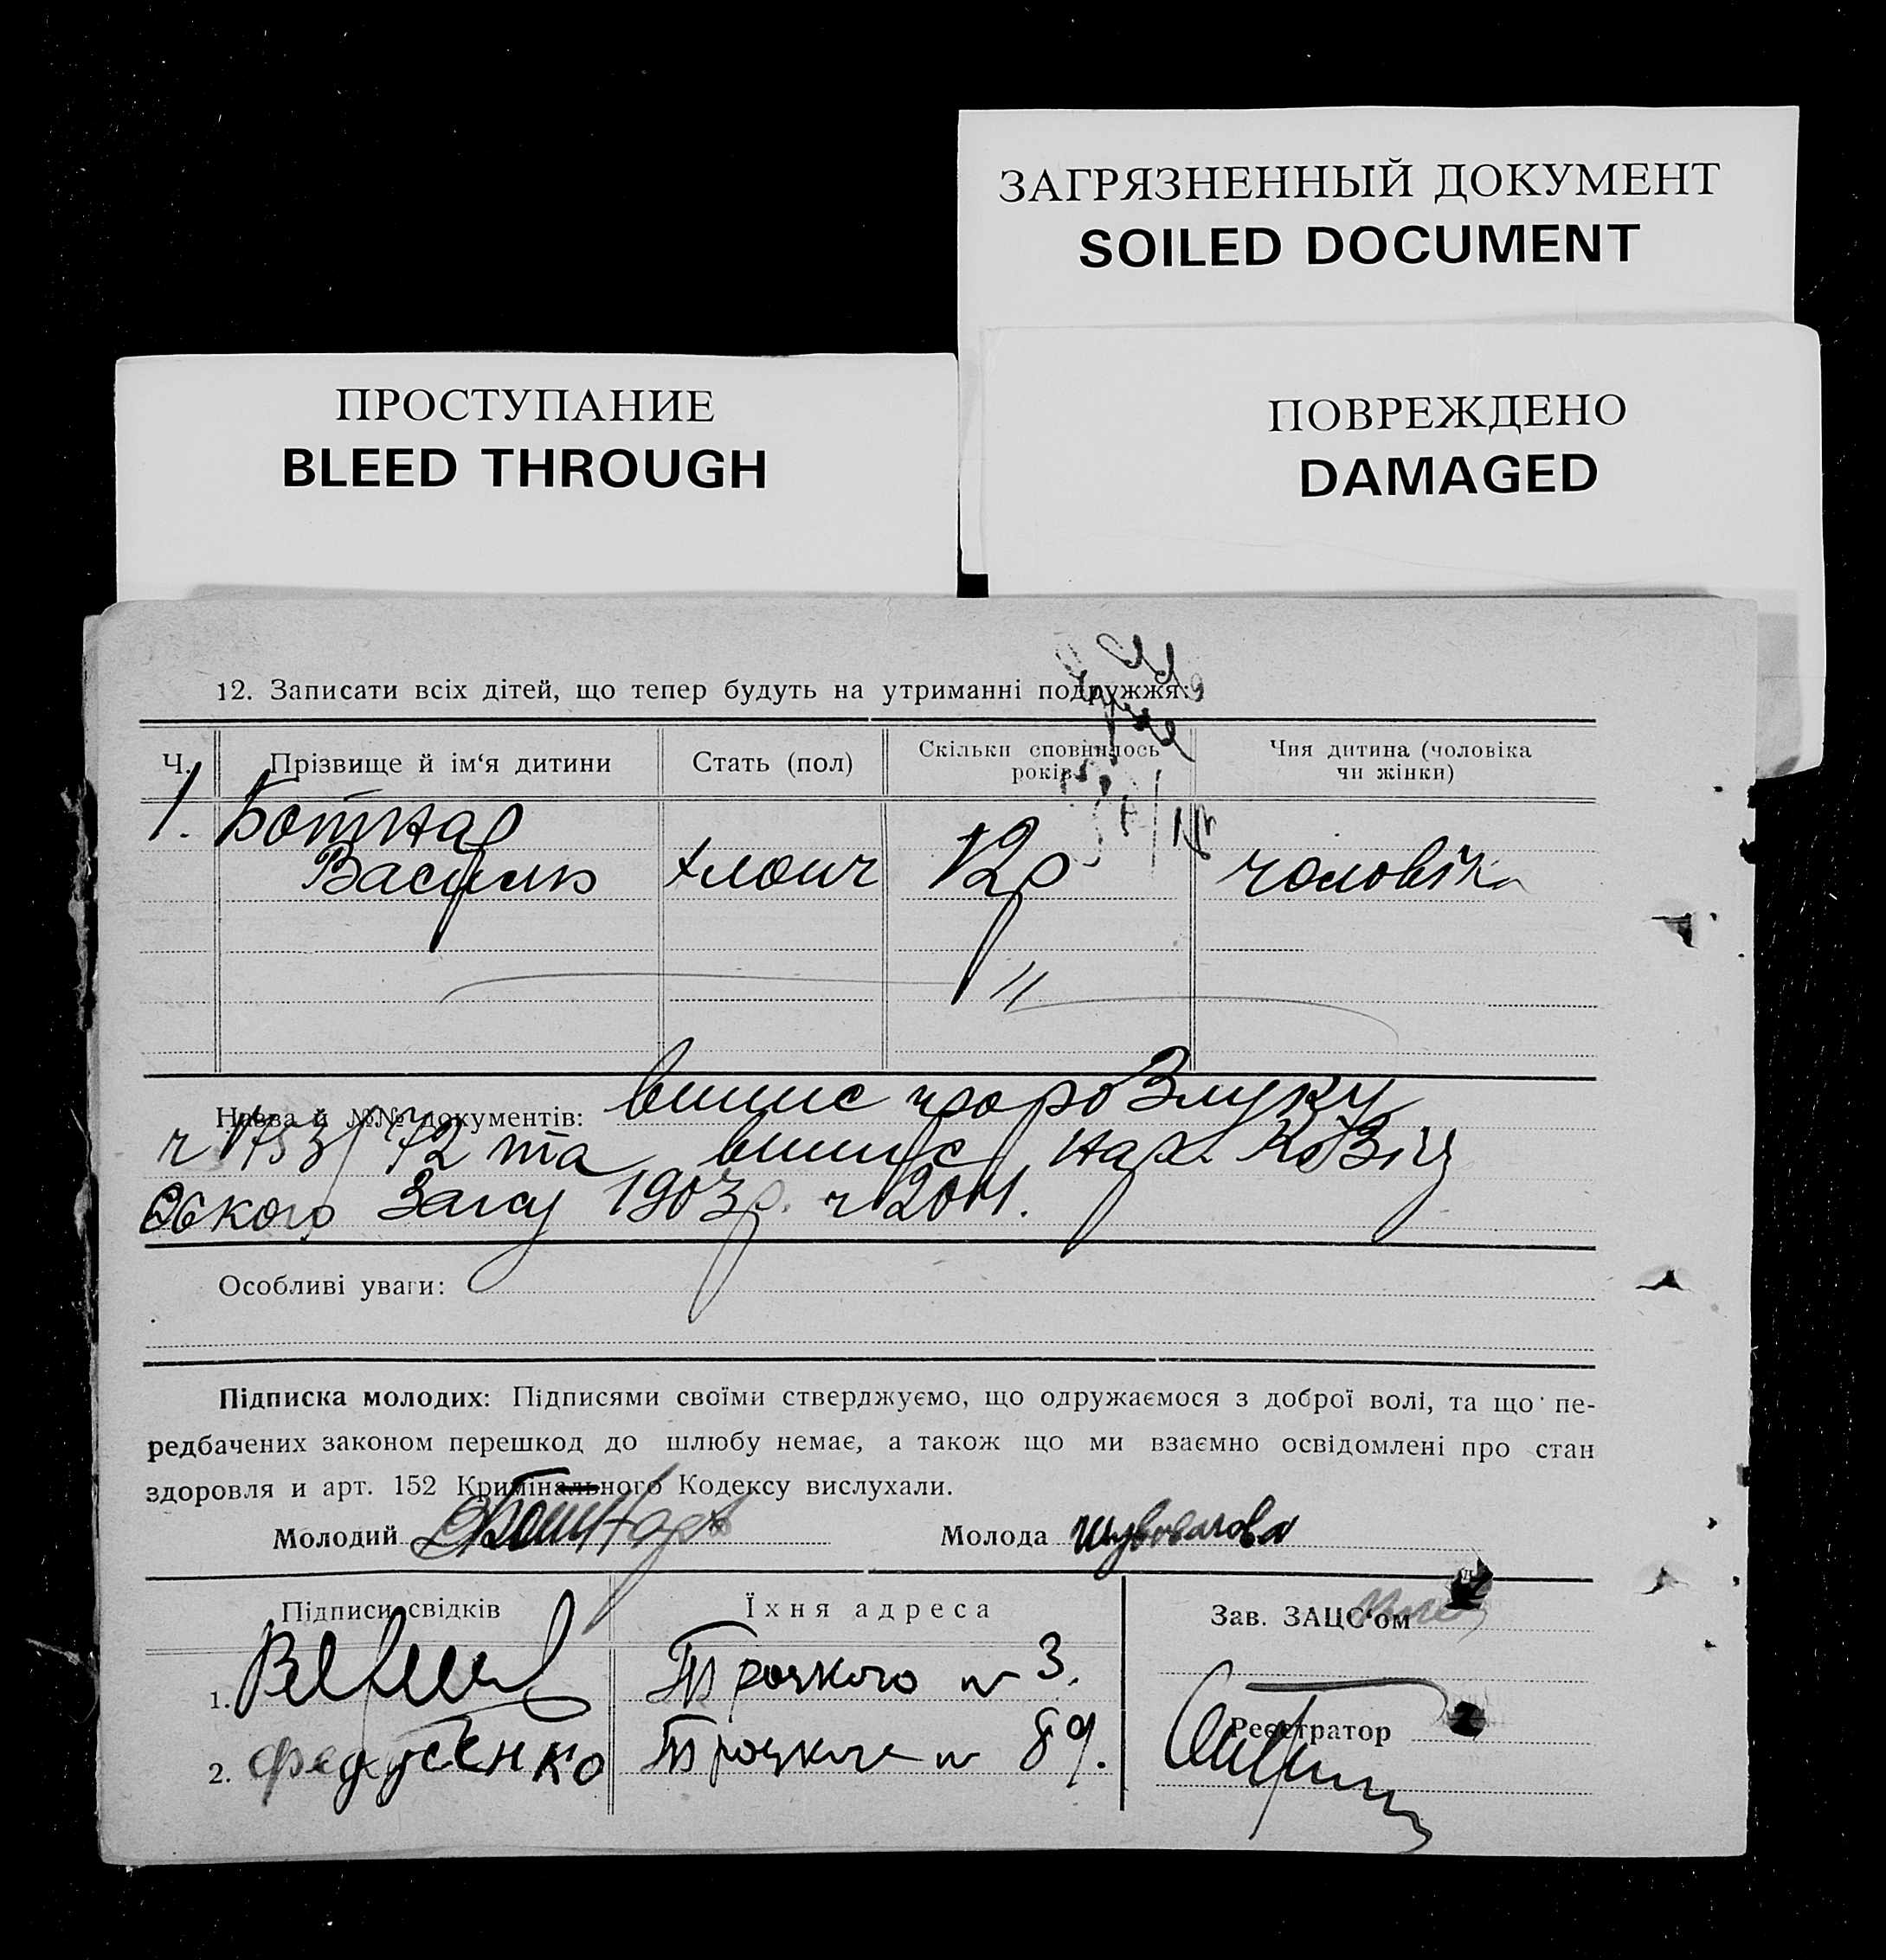 ЗАГРЯЗНЕННЫЙ ДОКУМЕНТ
SOILED DOCUMENT
ПРОСТУПАНИЕ
BLEED THROUGH
ПОВРЕЖДЕНО
DAMAGED
12. Записати всіх дітей, що тепер будуть на утриманні подружжя:
Ч. Прізвище й ім‘я дитини Стать (пол) Скільки сповнилось років Чия дитина (чоловіка чи жінки)
1. Ботнар
Василь хлопч 12р чоловіка
Назва й №№ документів: випис про розлуку
ч 1753/72 та випис
ського Загсу 1903р. ч
Особливі уваги:
Підписка молодих: Підписями своїми стверджуємо, що одружаємося з доброї волі, та що пе-
редбачених законом перешкод до шлюбу немає, а також що ми взаємно освідомлені про стан
здоровля и арт. 152 Кримінального Кодексу вислухали.
Молодий Ботнар Молода
Підписи свідків Їхня адреса Зав. ЗАЦС‘ом
1. Троцкого № 3.
Реєстратор
2. Федусенко Троцкого № 89.